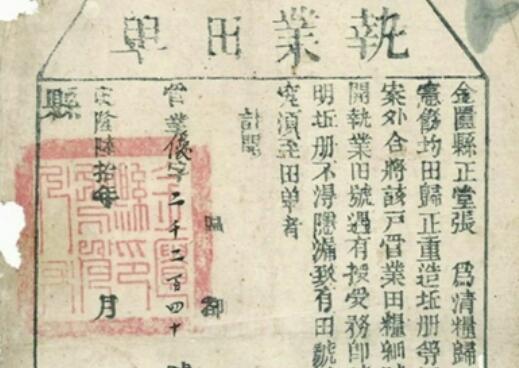 執業田單
金匱縣正堂張 為清糧歸
憲飭均田歸正重造坵册等
案外合將該戶管業田糧細
開執業田號遇有授受務即
明坵册不得隱漏致有田號
究須至田單者
計開
區 都
管業 字二千二百四十 號
乾隆陸拾年 月
縣